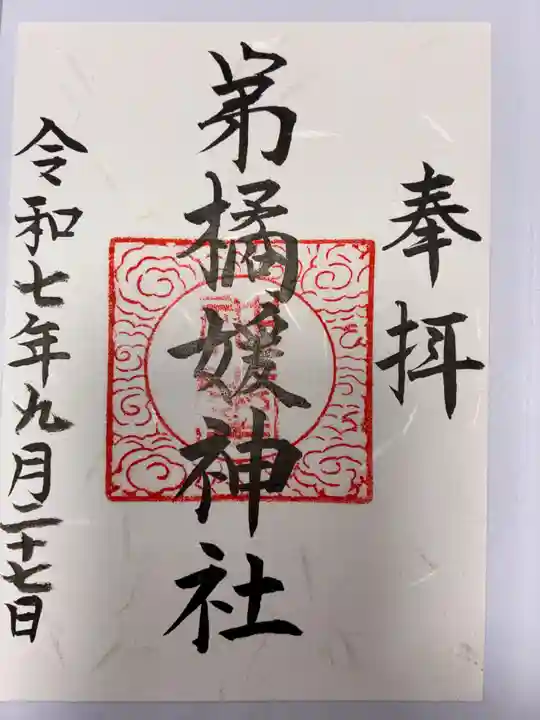 奉拝
弟橘媛神社
令和七年九月二十七日